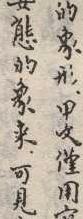 的象形，甲文僅用
態的象来，可見